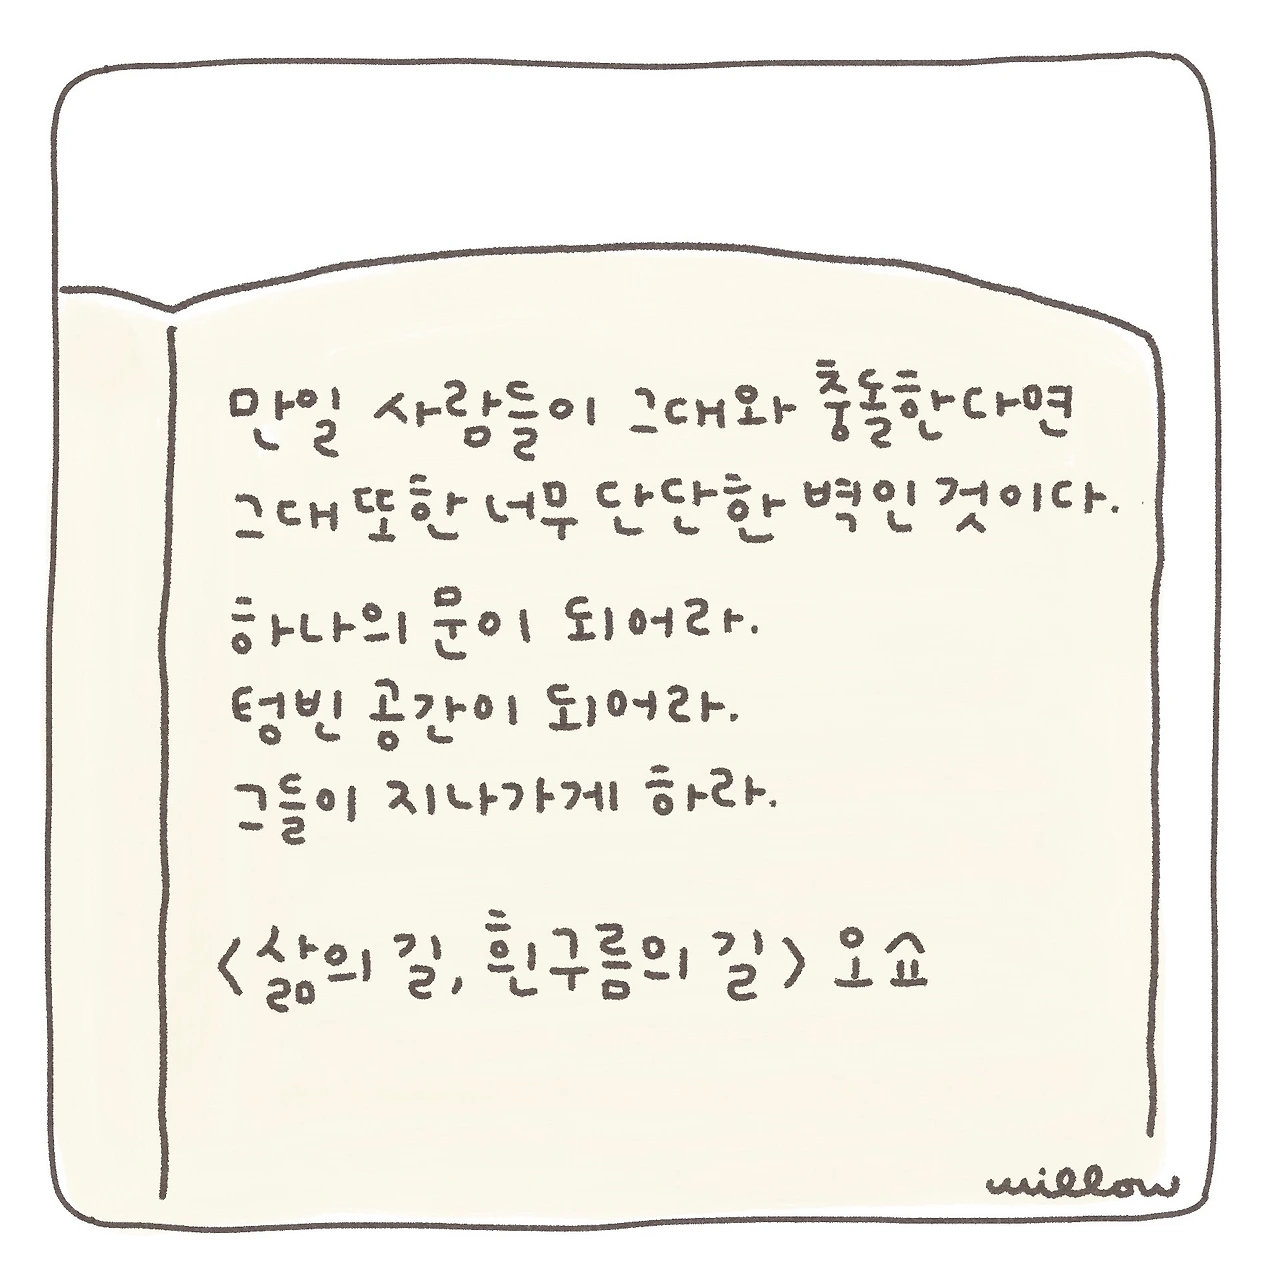 만일 사람들이 그대와 충돌한다면
그대 또한 너무 단단한 벽인 것이다.
하나의 문이 되어라.
텅빈 공간이 되어라.
그들이 지나가게 하라.
<삶의 길, 흰구름의 길> 오쇼
millow